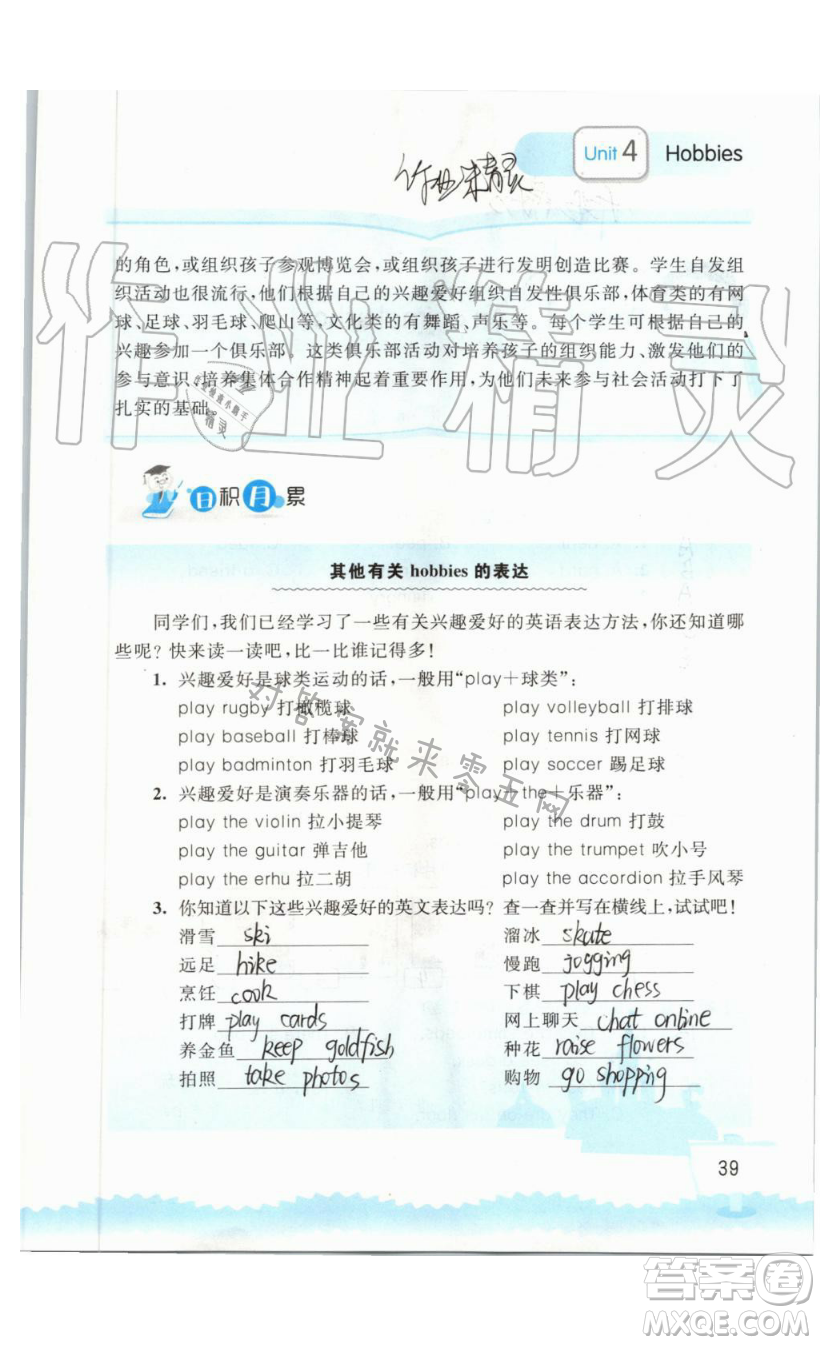 Unit 4 Hobbies
作业精灵
的角色，或组织孩子参观博览会，或组织孩子进行发明创造比赛。学生自发组
织活动也很流行，他们根据自己的兴趣爱好组织自发性俱乐部，体育类的有网
球、足球、羽毛球、爬山等，文化类的有舞蹈、声乐等。每个学生可根据自己的
兴趣参加一个俱乐部。这类俱乐部活动对培养孩子的组织能力、激发他们的
参与意识、培养集体合作精神起着重要作用，为他们未来参与社会活动打下了
扎实的基础。
作业精灵
日积月累
其他有关 hobbies 的表达
同学们，我们已经学习了一些有关兴趣爱好的英语表达方法，你还知道哪
些呢？快来读一读吧，比一比谁记得多！
1. 兴趣爱好是球类运动的话，一般用“play＋球类”：
play rugby 打橄榄球 play volleyball 打排球
play baseball 打棒球 play tennis 打网球
play badminton 打羽毛球 play soccer 踢足球
2. 兴趣爱好是演奏乐器的话，一般用“play＋the＋乐器”：
play the violin 拉小提琴 play the drum 打鼓
play the guitar 弹吉他 play the trumpet 吹小号
play the erhu 拉二胡 play the accordion 拉手风琴
3. 你知道以下这些兴趣爱好的英文表达吗？查一查并写在横线上，试试吧！
滑雪 ski 溜冰 skate
远足 hike 慢跑 jogging
烹饪 cook 下棋 play chess
打牌 play cards 网上聊天 chat online
养金鱼 keep goldfish 种花 raise flowers
拍照 take photos 购物 go shopping
对答案就来零五网
39
答案卷
MXQE.COM